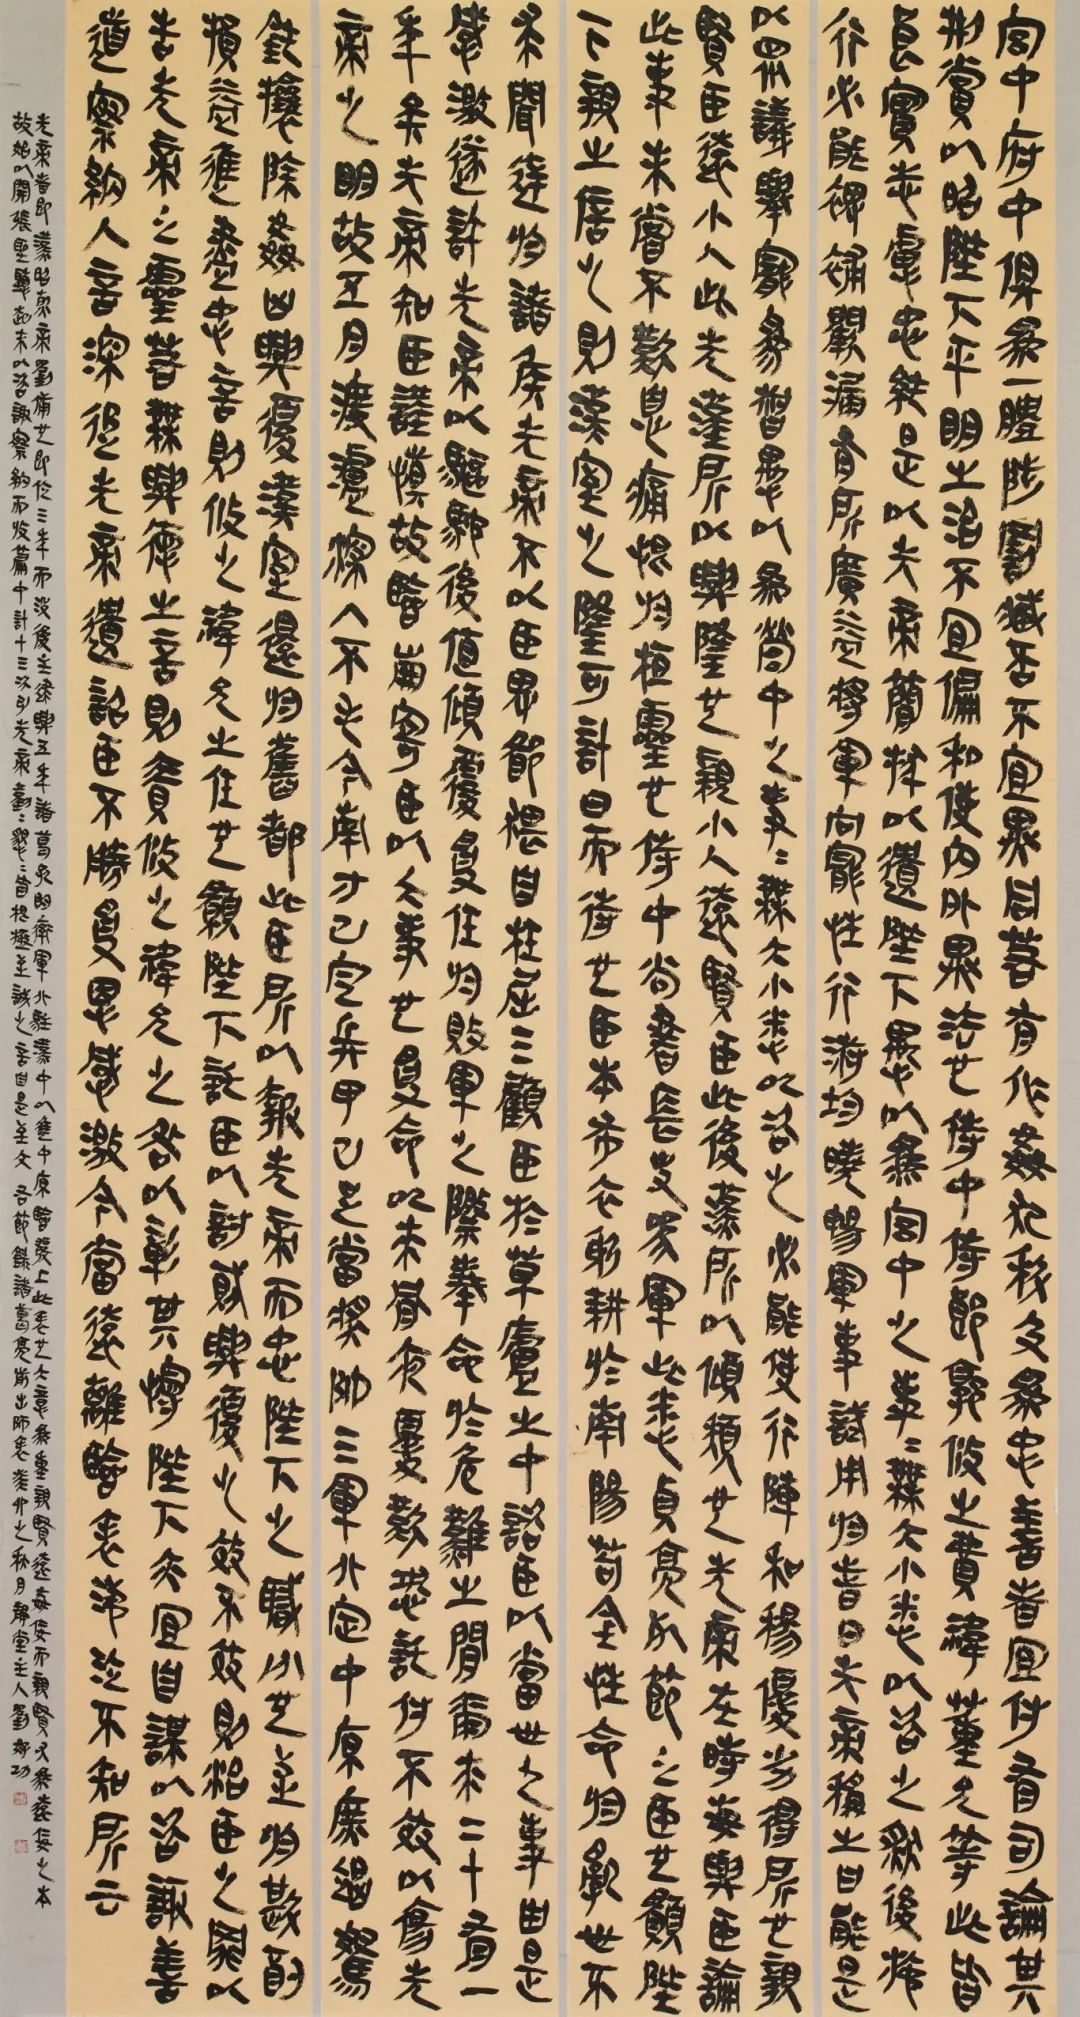 宮中府中俱為一體陟罰臧否不宜異同若有作姦犯科及為忠善者宜付有司論其
刑賞以昭陛下平明之治不宜偏私使內外異法也侍中侍郎郭攸之費禕董允等此皆
良實志慮忠純是以先帝簡拔以遺陛下愚以為宮中之事〻無大小悉以咨之然後施
行必能裨補闕漏有所廣益將軍向寵性行淑均曉暢軍事試用於昔日先帝稱之曰能是
以眾議舉寵為督愚以為營中之事〻無大小悉以咨之必能使行陣和穆優劣得所也親
賢臣遠小人此先漢所以興隆也親小人遠賢臣此後漢所以傾頹也先帝在時每與臣論
此事未嘗不歎息痛恨於桓靈也侍中尚書長史參軍此悉貞亮死節之臣也願陛
下親之信之則漢室之隆可計日而待也臣本布衣躬耕於南陽苟全性命於亂世不
求聞達於諸侯先帝不以臣卑鄙猥自枉屈三顧臣於草廬之中諮臣以當世之事由是
感激遂許先帝以驅馳後值傾覆受任於敗軍之際奉命於危難之間爾來二十有一
年矣先帝知臣謹慎故臨崩寄臣以大事也受命以來夙夜憂歎恐託付不效以傷先
帝之明故五月渡瀘深入不毛今南方已定兵甲已足當獎帥三軍北定中原庶竭駑
鈍攘除姦凶興復漢室還歸舊都此臣所以報先帝而忠陛下之職分也至於斟酌
損益進盡忠言則攸之禕允之任也願陛下託臣以討賊興復之效不效則治臣之罪以
告先帝之靈若無興德之言則責攸之禕允之咎以彰其慢陛下亦宜自謀以咨諏善
道察納人言深追先帝遺詔臣不勝受恩感激今當遠離臨表涕泣不知所云
先帝者即漢昭烈帝劉備也即位三年而沒後主建興五年諸葛亮開府率軍北駐漢中以進中原臨發上此表也大意為重親賢遠姦佞而親賢又為遠佞之本
故始以開張聖聽起末以咨諏察納而收篇中計十三次引先帝勤〻懇〻皆根極至誠之言自是至文 節錄諸葛亮前出師表癸卯之秋月靜堂主人劉功